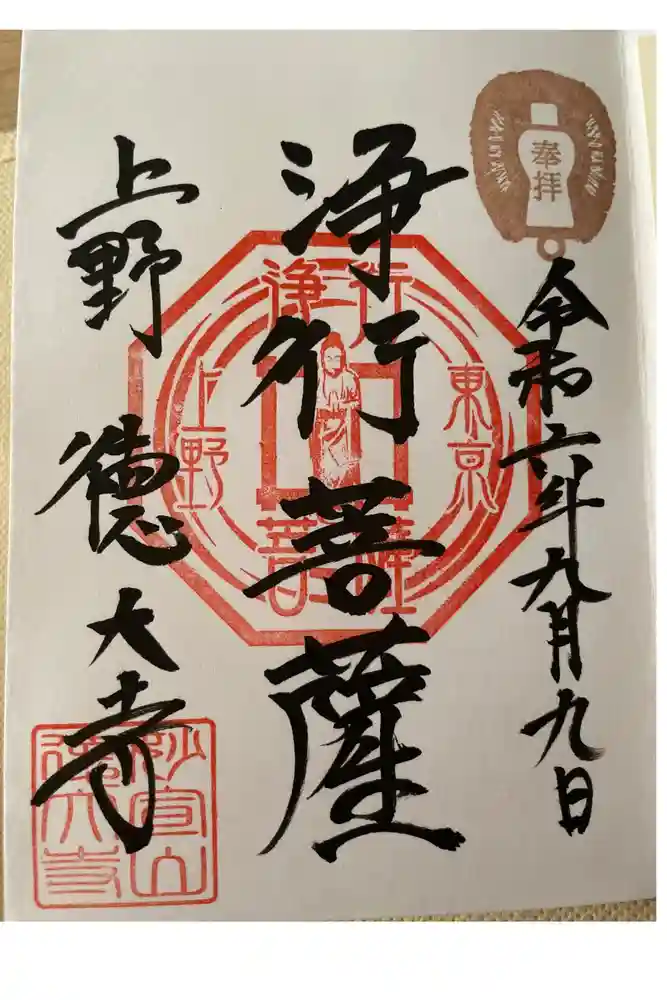 奉拝
令和六年九月九日
浄行菩薩
上野 徳大寺
浄行
東京
上野
菩薩
妙宣山
徳大寺